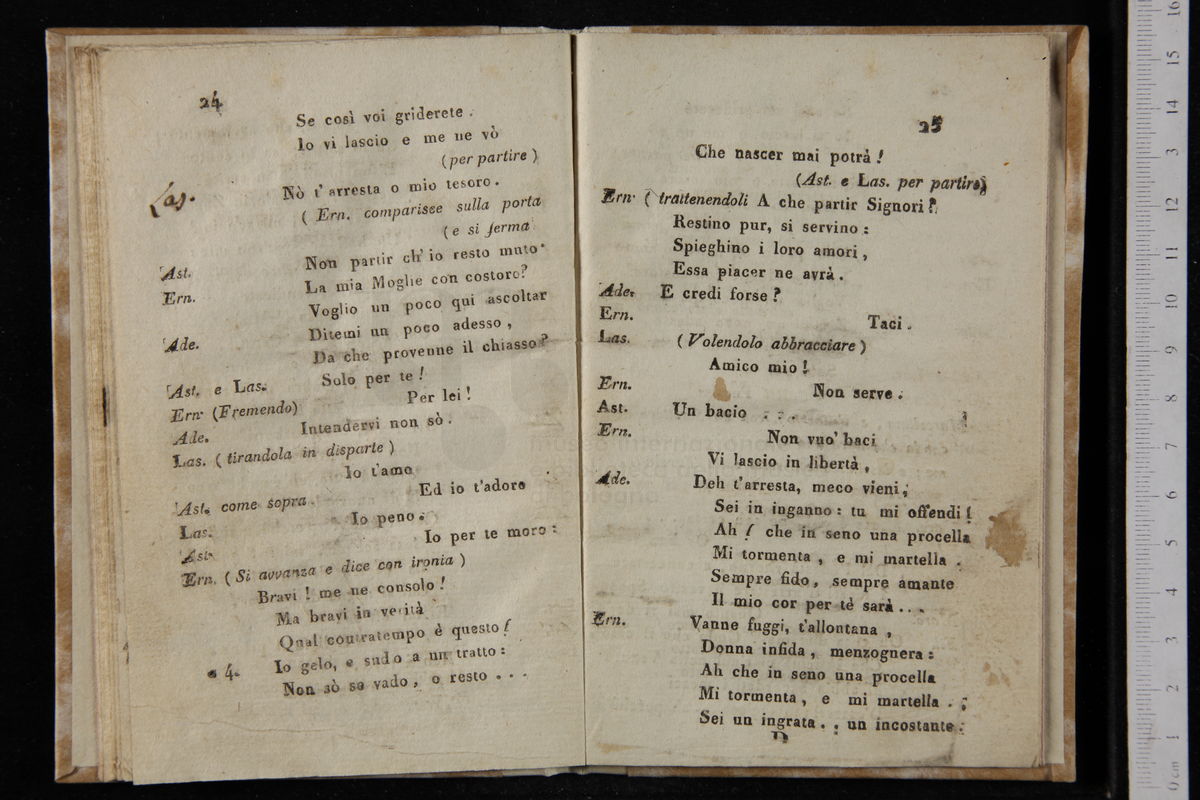 24
Se così voi griderete.
Io vi lascio e me ne vò
(per partire)
Las. Nò t'arresta o mio tesoro.
( Ern. comparisce sulla porta
( e si ferma
Ast. Non partir ch' io resto muto.
Ern. La mia Moglie con costoro?
Voglio un poco qui ascoltar
Ade. Ditemi un poco adesso,
Da che provenne il chiasso?
Ast. e Las. Solo per te!
Ern. (Fremendo) Per lei!
Ade. Intendervi non sò.
Las. ( tirandola in disparte )
Io t'amo
Ast. come sopra. Ed io t'adoro
Las. Io peno.
Ast. Io per te moro:
Ern. ( Si avvanza e dice con ironia )
Bravi! me ne consolo!
Ma bravi in verità
Qual contratempo è questo!
a 4. Io gelo, e sudo a un tratto:
Non sò se vado, o resto . . .
25
Che nascer mai potrà!
(Ast. e Las. per partire)
Ern. ( trattenendoli A che partir Signori?
Restino pur, si servino:
Spieghino i loro amori,
Essa piacer ne avrà.
Ade. E credi forse?
Ern. Taci.
Las. ( Volendolo abbracciare )
Amico mio!
Ern. Non serve.
Ast. Un bacio . . .
Ern. Non vuo' baci
Vi lascio in libertà,
Ade. Deh t'arresta, meco vieni,
Sei in inganno: tu mi offendi!
Ah! che in seno una procella
Mi tormenta, e mi martella.
Sempre fido, sempre amante
Il mio cor per te sarà . . .
Ern. Vanne fuggi, t'allontana,
Donna infida, menzognera:
Ah che in seno una procella
Mi tormenta, e mi martella . ;
Sei un ingrata . . un incostante.
D